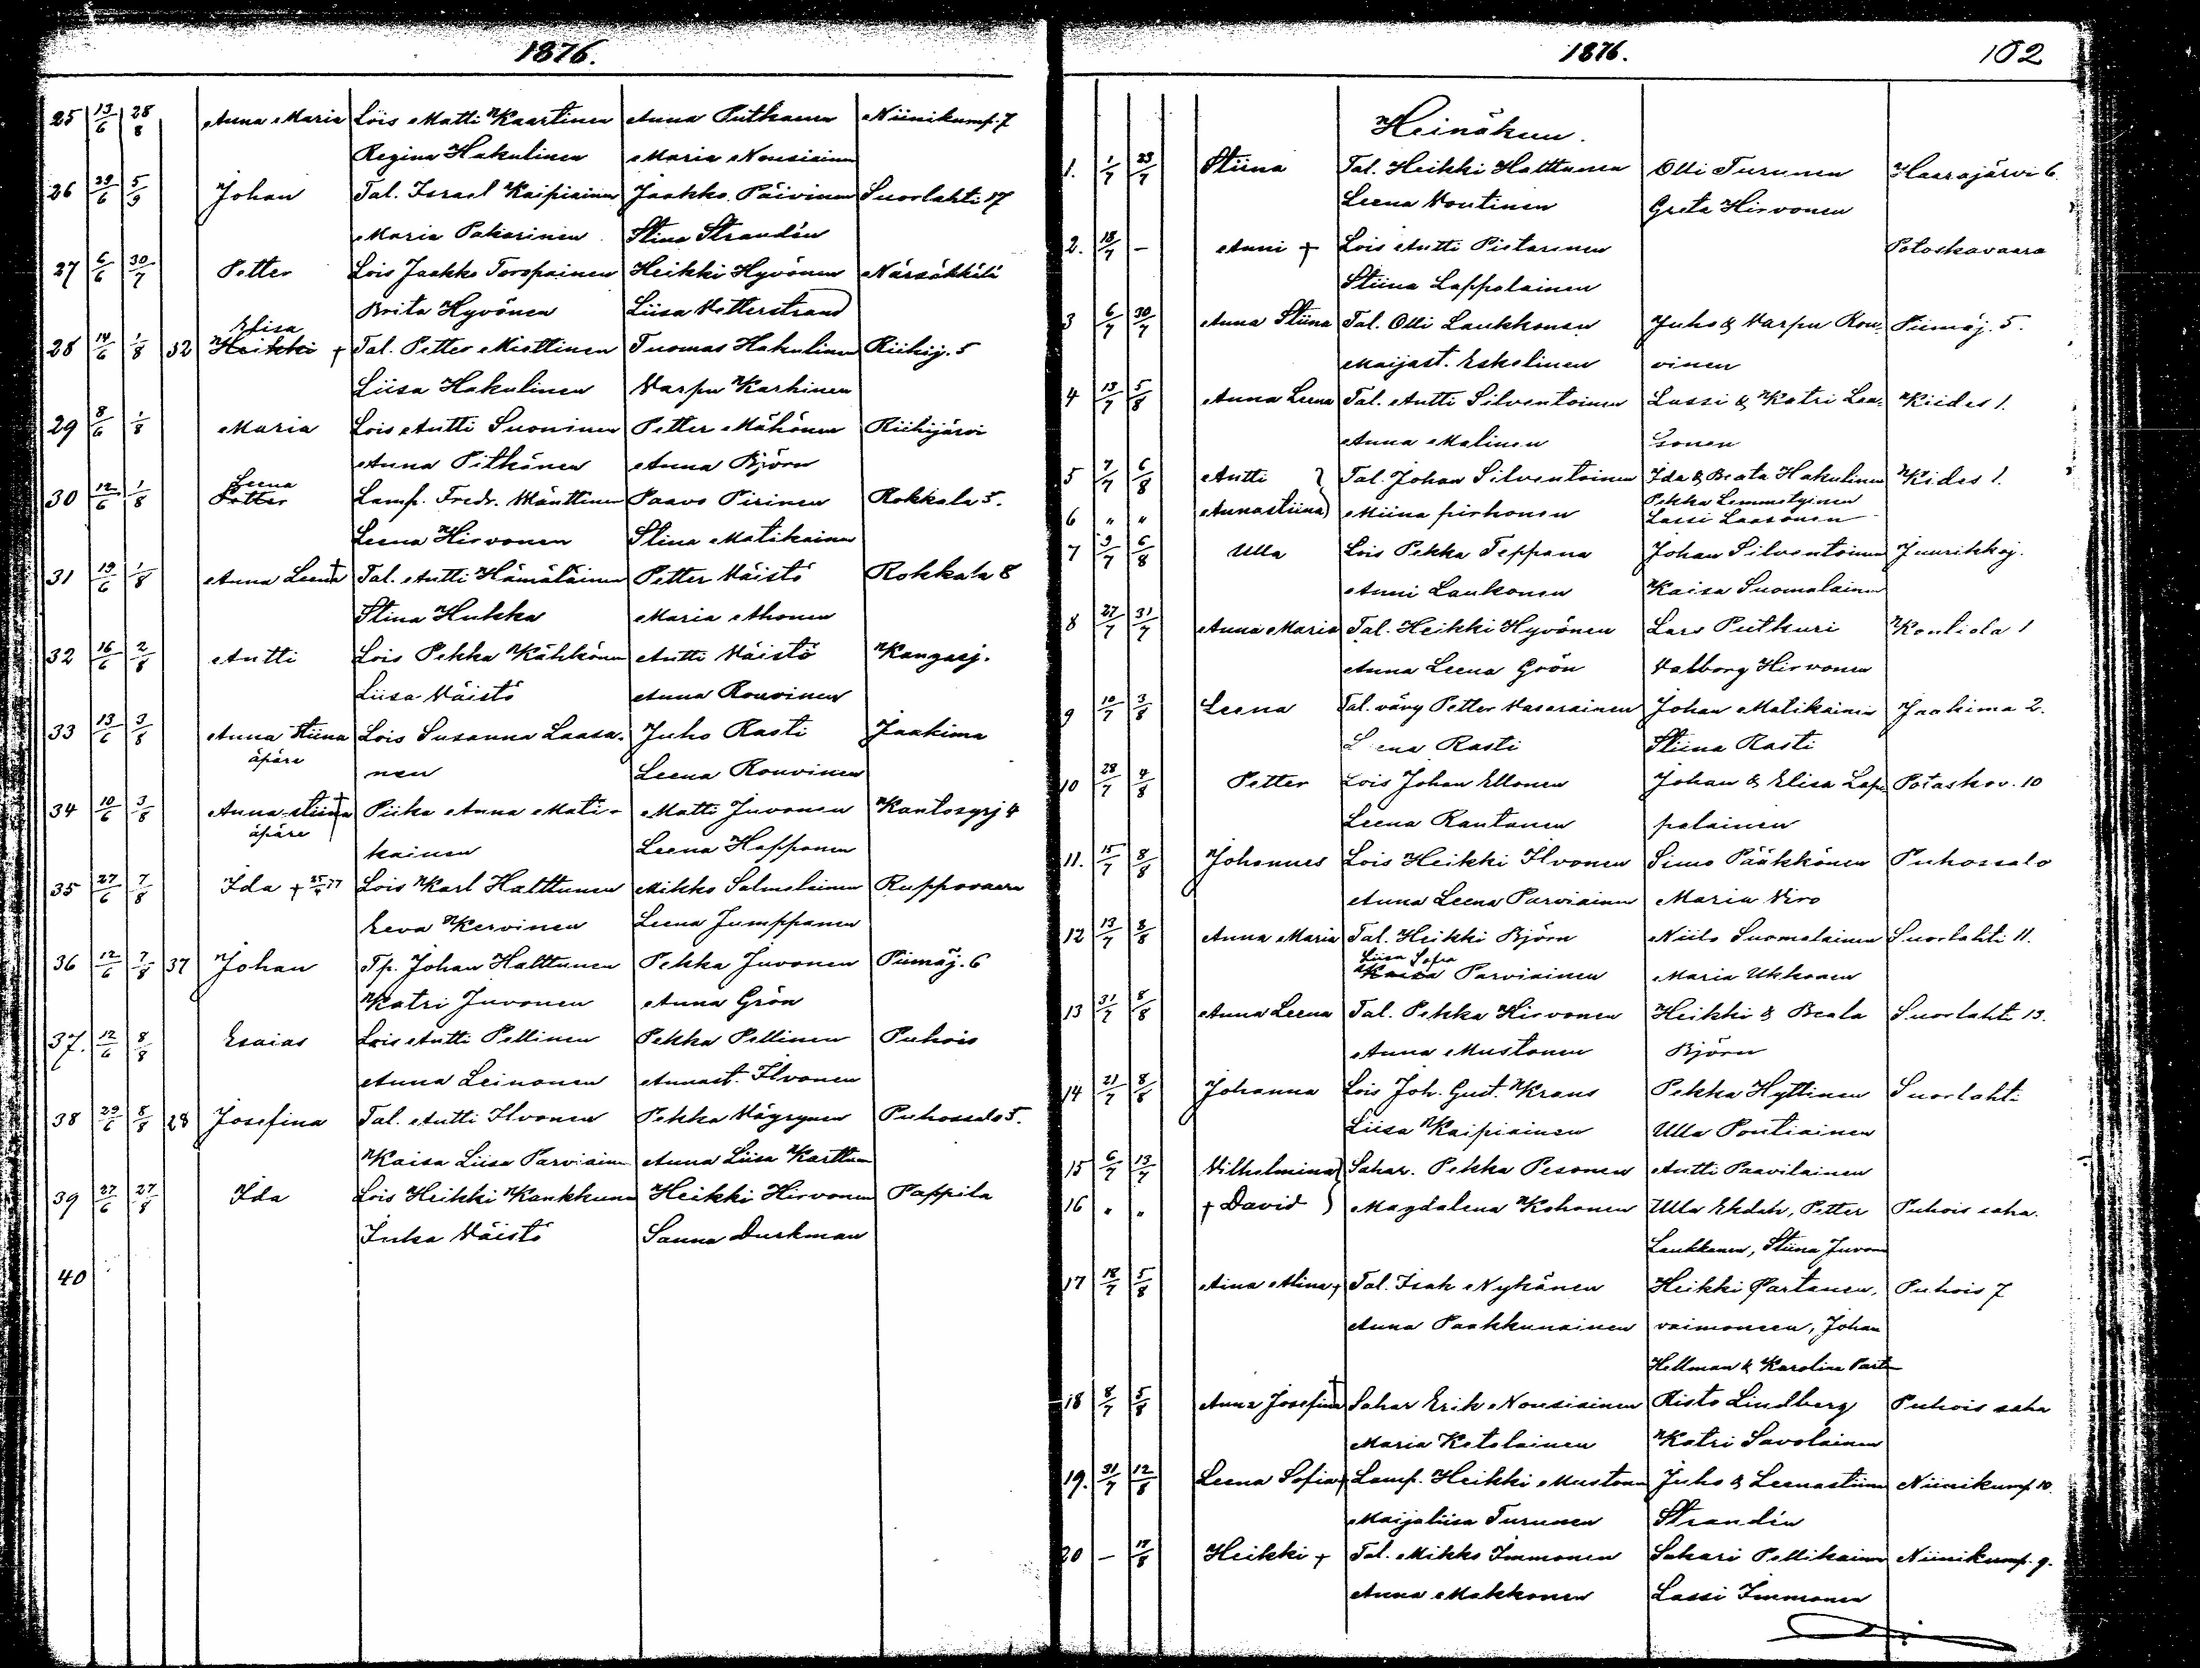 1876.
25 13/6 28/8 Anna Maria Lois Matti Kaartinen Anna Putkonen Niinikump. 7
Regina Hakulinen Maria Nousiainen
26 29/6 5/9 Johan Tal. Israel Kaipiainen Jaakko Päivinen Suorlahti 17
Maria Pakarinen Stina Strandén
27 6/6 30/7 Petter Lois Jaakko Toropainen Heikki Hyvönen Närsäkkälä
Brita Hyvönen Liisa Vetterstrand
Elisa
28 14/6 1/8 32 Heikki + Tal. Petter Miettinen Tuomas Hakulinen Riihij. 5
Liisa Hakulinen Varpu Karhinen
29 8/6 1/8 Maria Lois Antti Suoninen Petter Mähönen Riihijärvi
Anna Pitkänen Anna Björn
Leena
30 12/6 1/8 Petter Lamp. Fredr. Mänttinen Paavo Pirinen Rokkala 5.
Leena Hirvonen Stina Matikainen
31 19/6 1/8 Anna Leena + Tal. Antti Hämäläinen Petter Väistö Rokkala 8
Stina Hukka Maria Ahonen
32 16/6 2/8 Antti Lois Pekka Kähkönen Antti Väistö Kangasj.
Liisa Väistö Anna Rouvinen
33 13/6 3/8 Anna Stiina Lois Susanna Laaso- Juho Rasti Jaakima
äpäre nen Leena Rouvinen
34 10/6 3/8 Anna Stiina + Piika Anna Mati- Matti Juvonen Kantosyrj 4
äpäre kainen Leena Happonen
35 27/6 7/8 Ida + 25/4 77 Lois Karl Halttunen Mikko Salmelainen Ruppovaara
Eeva Kervinen Leena Jumppanen
36 12/6 7/8 37 Johan Tp. Johan Halttunen Pekka Juvonen Piimäj. 6
Katri Juvonen Anna Grön
37. 12/6 8/8 Esaias Lois Antti Pellinen Pekka Pellinen Puhois
Anna Leinonen Annast. Ilvonen
38 29/6 8/8 28 Josefina Tal. Antti Ilvonen Pekka Väyrynen Puhossalo 5.
Kaisa Liisa Parviainen Anna Liisa Karttunen
39 27/6 27/8 Ida Lois Heikki Kankkunen Heikki Hirvonen Pappila
Inka Väistö Sanna Durkman
40
1876. 102
Heinäkuu.
1. 1/7 23/7 Stiina Tal. Heikki Halttunen Olli Turunen Haarajärvi 6
Leena Voutinen Greta Hirvonen
2. 18/7 — Anni + Lois Antti Pietarinen Potoskavaara
Stiina Lappalainen
3 6/7 30/7 Anna Stiina Tal. Olli Laukkonen Juho & Varpu Rou- Piimäj. 5.
Maijast. Eskelinen vinen
4 13/7 5/8 Anna Leena Tal. Antti Silventoinen Lassi & Katri Laa- Kiides 1.
Anna Malinen sonen
5 7/7 6/8 Antti } Tal. Johan Silventoinen Ida & Beata Hakulinen Kides 1.
Pekka Lemmetyinen
6 " " Annastiina } Miina Pirhonen Lassi Laasonen
7 9/7 6/8 Ulla Lois Pekka Teppana Johan Silventoinen Juurikkaj.
Anni Laukonen Kaisa Suomalainen
8 27/7 31/7 Anna Maria Tal. Heikki Hyvönen Lars Putkuri Kontiola 1
Anna Leena Grön Valborg Hirvonen
9 10/7 3/8 Leena Tal. vävy Petter Vaserainen Johan Matikainen Jaakima 2.
Leena Rasti Stiina Rasti
10 28/7 4/8 Petter Lois Johan Ellonen Johan & Elisa Lap- Potaskov. 10
Leena Rautanen palainen
11. 15/7 8/8 Johannes Lois Heikki Ilvonen Simo Pääkkönen Puhossalo
Anna Leena Parviainen Maria Viro
12 13/7 8/8 Anna Maria Tal. Heikki Björn Niilo Suomalainen Suorlahti 11.
Liisa Sofia
Kaisa Parviainen Maria Ukkonen
13 31/7 8/8 Anna Leena Tal. Pekka Hirvonen Heikki & Beata Suorlahti 13.
Anna Mustonen Björn
14 21/7 8/8 Johanna Lois Joh. Gust. Krans Pekka Hyttinen Suorlahti
Liisa Kaipiainen Ulla Pontiainen
15 6/7 13/7 Vilhelmina } Sahar. Pekka Pesonen Antti Paavilainen
16 " " + David } Magdalena Kohonen Ulla Ekdah, Petter Puhois saha.
Laukkanen, Stiina Juvonen
17 18/7 5/8 Aina Alina + Tal. Isak Nykänen Heikki Partanen, Puhois 7
Anna Paakkunainen vaimoneen, Johan
Hellman & Karolina Part
18 8/7 5/8 Anna Josefina + Sahar Erik Nousiainen Risto Lindberg Puhois saha
Maria Ketolainen Katri Savolainen
19. 31/7 12/8 Leena Sofia + Lamp. Heikki Mustonen Juho & Leenastiina Niinikump. 10.
Maijaliisa Turunen Strandén
20 — 17/8 Heikki + Tal. Mikko Immonen Sakari Pellikainen Niinikump. 9.
Anna Makkonen Lassi Immonen